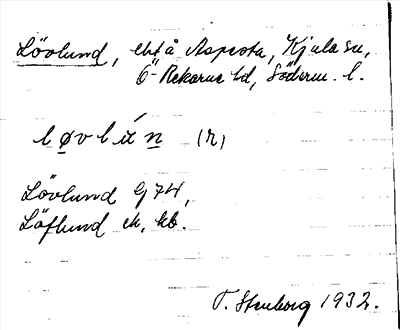 Lövlund, ebt å Aspesta, Kjula sn,
Ö Rekarne hd, Söderm. l.
løvlún (r)
Lövlund G 74,
Löflund ek, kb.
T. Stenborg 1932.